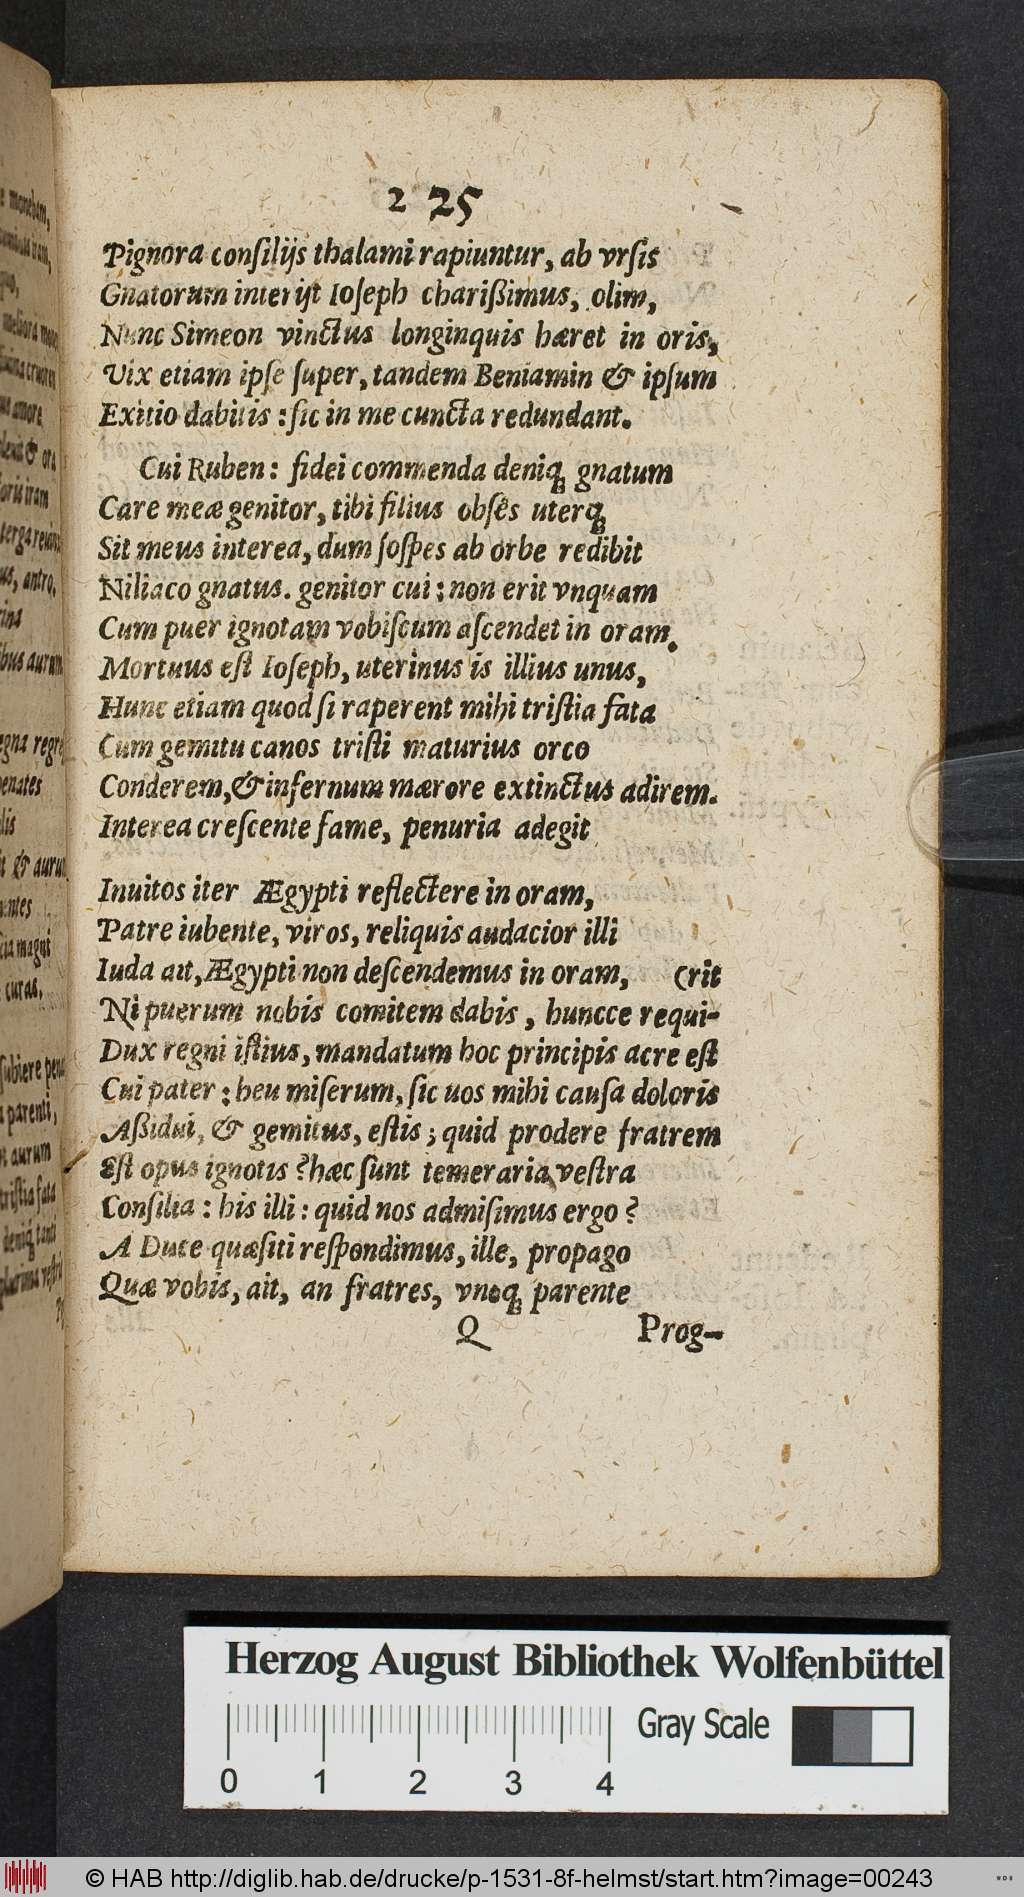 2 25
Pignora consilijs thalami rapiuntur, ab vrsis
Gnatorum interijt Ioseph charißimus, olim,
Nunc Simeon vinctus longinquis hæret in oris,
Vix etiam ipse super, tandem Beniamin & ipsum
Exitio dabitis: sic in me cuncta redundant.
Cui Ruben: fidei commenda deniqꝫ gnatum
Care meæ genitor, tibi filius obsẽs uterqꝫ
Sit meus interea, dum sospes ab orbe redibit
Niliaco gnatus. genitor cui: non erit vnquam
Cum puer ignotam vobiscum ascendet in oram.
Mortuus est Ioseph, uterinus is illius unus,
Hunc etiam quod si raperent mihi tristia fata
Cum gemitu canos tristi maturius orco
Conderem, & infernum mærore extinctus adirem.
Interea crescente fame, penuria adegit
Inuitos iter Ægypti reflectere in oram,
Patre iubente, viros, reliquis audacior illi
Iuda ait, Ægypti non descendemus in oram, (rit
Ni puerum nobis comitem dabis, huncce requi-
Dux regni istius, mandatum hoc principis acre est
Cui pater: heu miserum, sic uos mihi causa doloris
Aßidui, & gemitus, estis; quid prodere fratrem
Est opus ignotis? hæc sunt temeraria vestra
Consilia: his illi: quid nos admisimus ergo?
A Duce quæsiti respondimus, ille, propago
Quæ vobis, ait, an fratres, vnoqꝫ parente
Q Prog-
Herzog August Bibliothek Wolfenbüttel
Gray Scale
0 1 2 3 4
© HAB http://diglib.hab.de/drucke/p-1531-8f-helmst/start.htm?image=00243